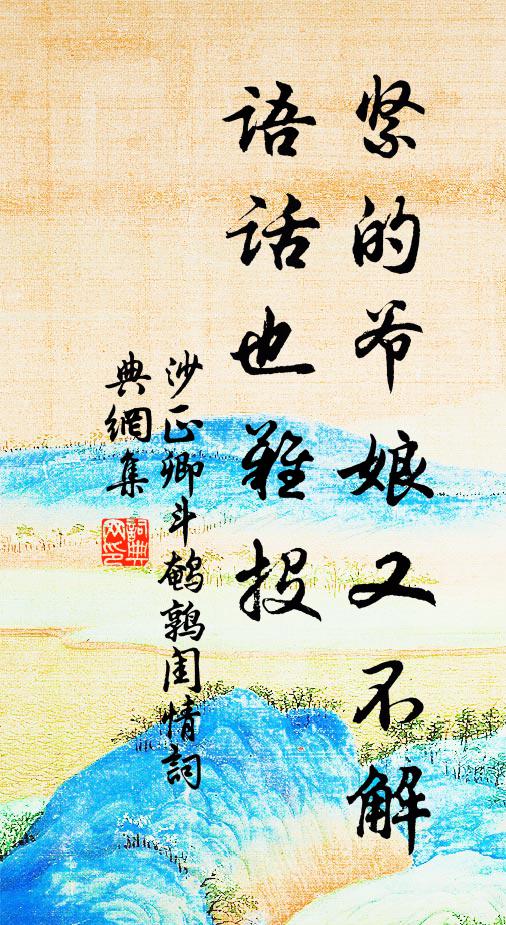 紧的爷娘又不解
语话也难投
沙正卿斗鹌鹑闺情词
典網集
詞典
网印